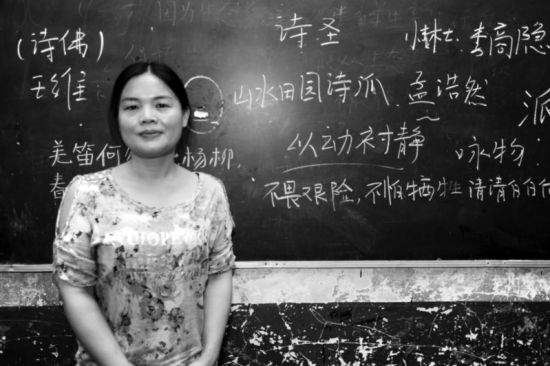 因为
诗圣
(诗佛)
王维
李商隐
山水田园诗派.孟浩然
派
羌笛何
杨柳,
春
以动衬静
咏物.
不畏艰险,不怕牺牲 清清白白